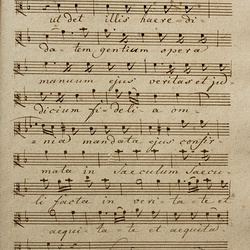 ut det illis haere-di-
da-tem gentium opera
manuum ejus veritas et ju-
dicium fi-de-li-a om-
nia mandata ejus confir-
mata in saeculum saecu-
li facta in veri-ta-te et
aequi-ta-te et aequita-